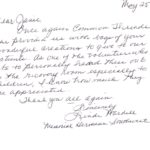 May 25
Dear Jane
Once again Common Threads
has provided us with bags of your
wonderful creations to give to our
patients. As one of the volunteers who
gets to personally hand them out
in the Recovery Room especially to
children, I know how much they
are appreciated
Thank you all again
Sincerely
Linda
Memorial Hermann Southwest